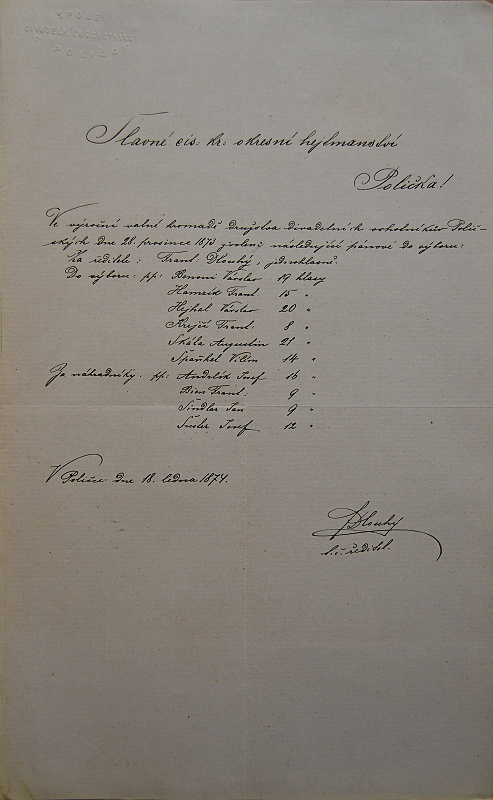 Slavné cís: kr: okresní hejtmanství
Polička!
Ve výroční valné hromadě družstva divadelních ochotníkův Polič-
ských dne 28. prosince 1873 zvoleni následující pánové do výboru:
Za ředitele: Frant: Dlouhý, jednohlasně.
Do výboru: pp: Benoni Václav 19 hlasy
Hamzík Frant 15 "
Hejhal Václav 20 "
Krejčí Frant: 8 "
Skála Augustin 21 "
Španhel Vilím 14 "
Za náhradníky: pp: Andrlík Josef 16 "
Frant: 9 "
Šindlar Jan 9 "
Šusler Josef 12 "
V Poličce dne 18. ledna 1874.
Dlouhý
t.č. ředitel.